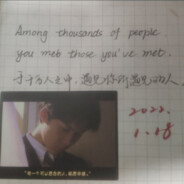 Among thousands of people
you met those you've met.
于千万人之中，遇见你所遇见的人
2022.
1.08